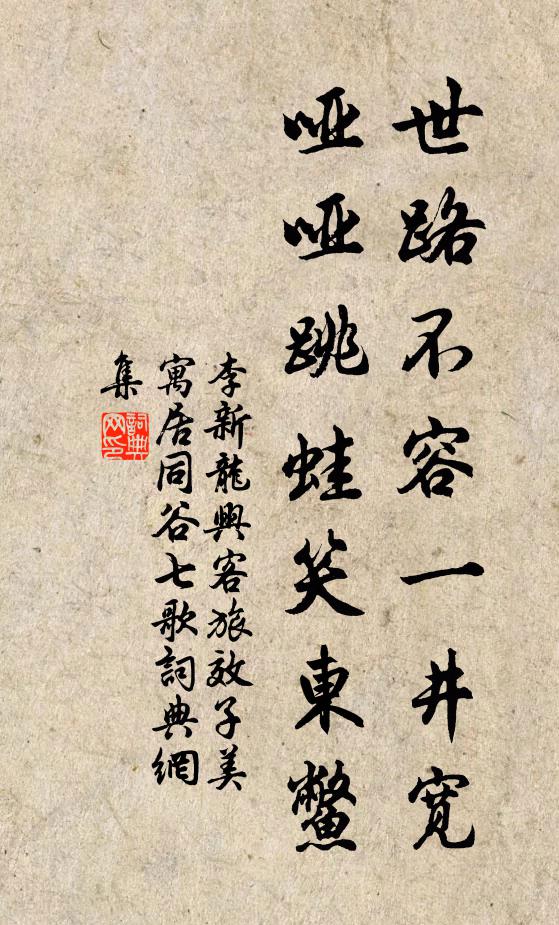 世路不容一井寬
啞啞跳蛙笑東鱉
李新龍興客旅效子美
寓居同谷七歌詞典網
集
詞典
网印